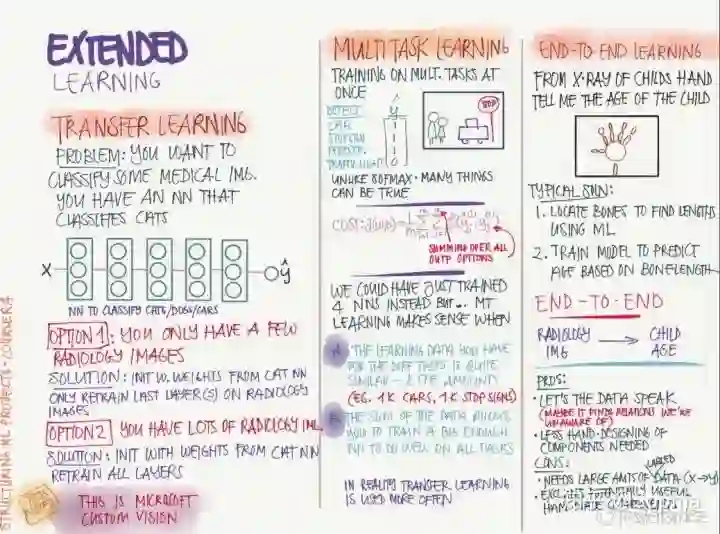 EXTENDED
LEARNING
TRANSFER LEARNING
PROBLEM: YOU WANT TO
CLASSIFY SOME MEDICAL IMG.
YOU HAVE AN NN THAT
CLASSIFIES CATS
X
ŷ
NN TO CLASSIFY CATS/DOGS/CARS
OPTION 1: YOU ONLY HAVE A FEW
RADIOLOGY IMAGES
SOLUTION: INIT W. WEIGHTS FROM CAT NN
ONLY RETRAIN LAST LAYER(S) ON RADIOLOGY
IMAGES
OPTION 2 YOU HAVE LOTS OF RADIOLOGY IMG
SOLUTION: INIT WITH WEIGHTS FROM CAT NN
RETRAIN ALL LAYERS
THIS IS MICROSOFT
CUSTOM VISION
STRUCTURING ML PROJECTS · COURSERA
MULTI TASK LEARNING
TRAINING ON MULT. TASKS AT
ONCE
DETECT
CAR
STOP SIGN
TRAFFIC LIGHT
ŷ
STOP
UNLIKE SOFMAX · MANY THINGS
CAN BE TRUE
COST:
SUMMING OVER ALL
OUTP OPTIONS
WE COULD HAVE JUST TRAINED
4 NNS INSTEAD BUT... MT
LEARNING MAKES SENSE WHEN
THE LEARNING DATA YOU HAVE
FOR THE DIFF TASKS IS QUITE
SIMILAR
(EG. 1K CARS, 1K STOP SIGNS)
THE SUM OF THE DATA ALLOWS
YOU TO TRAIN A BIG ENOUGH
NN TO DO WELL ON ALL TASKS
IN REALITY TRANSFER LEARNING
IS USED MORE OFTEN
END-TO-END LEARNING
FROM X-RAY OF CHILDS HAND
TELL ME THE AGE OF THE CHILD
TYPICAL SOLN:
1. LOCATE BONES TO FIND LENGTHS
USING ML
2. TRAIN MODEL TO PREDICT
AGE BASED ON BONELENGTH
END-TO-END
RADIOLOGY → CHILD
IMG AGE
PROS:
· LET'S THE DATA SPEAK
(MAYBE IT FINDS RELATIONS WE'RE
UNAWARE OF)
· LESS HAND-DESIGNING OF
COMPONENTS NEEDED
CONS:
LABLED
· NEEDS LARGE AMTS OF DATA (X→Y)
· EXCLUDES POTENTIALLY USEFUL